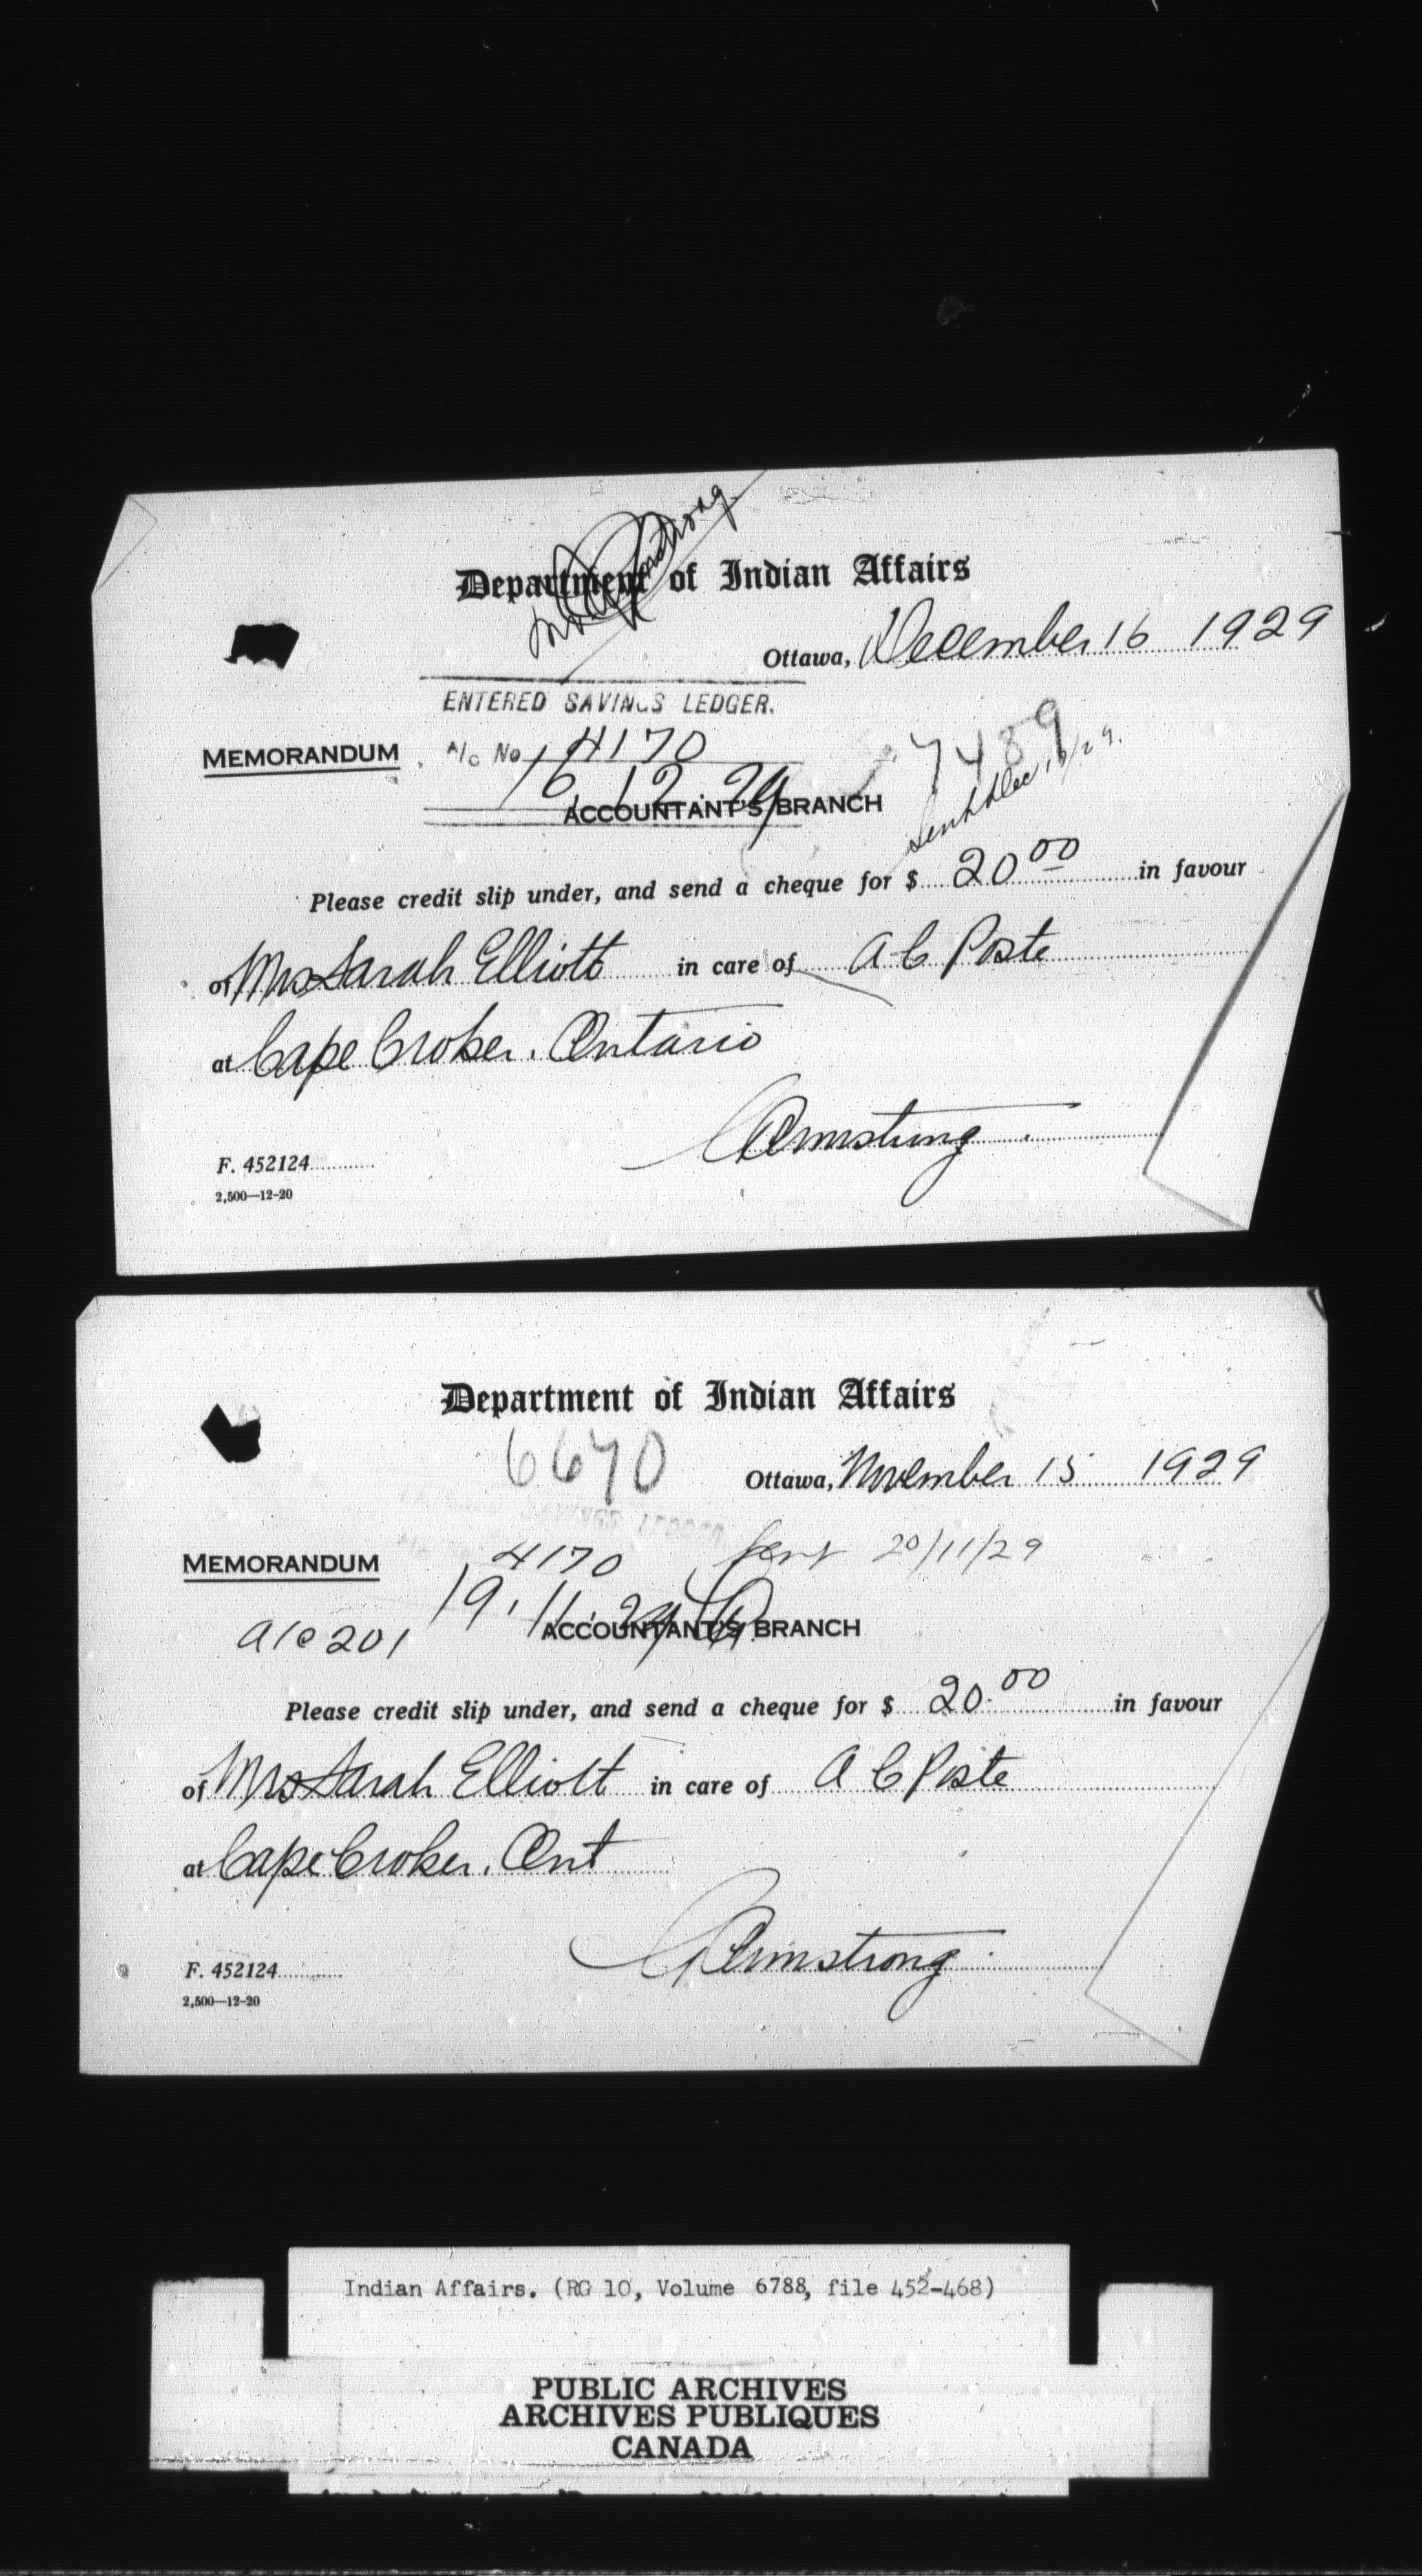 Mr Armstrong
Department of Indian Affairs
Ottawa, December 16 1929
ENTERED SAVINGS LEDGER.
MEMORANDUM A/c No 4170
16.12.29 7489
ACCOUNTANT'S BRANCH Sent Dec 16/29.
Please credit slip under, and send a cheque for $ 20.00 in favour
of Mrs Sarah Elliott in care of A C Poste
at Cape Croker. Ontario
Armstrong
F. 452124
2,500—12-20
Department of Indian Affairs
6640
Ottawa, November 15 1929
MEMORANDUM 4170 Sent 20/11/29
19.11.29
a/c 201 ACCOUNTANT'S BRANCH
Please credit slip under, and send a cheque for $ 20.00 in favour
of Mrs Sarah Elliott in care of A C Poste
at Cape Croker. Ont
Armstrong
F. 452124
2,500—12-20
Indian Affairs. (RG 10, Volume 6788, file 452-468)
PUBLIC ARCHIVES
ARCHIVES PUBLIQUES
CANADA